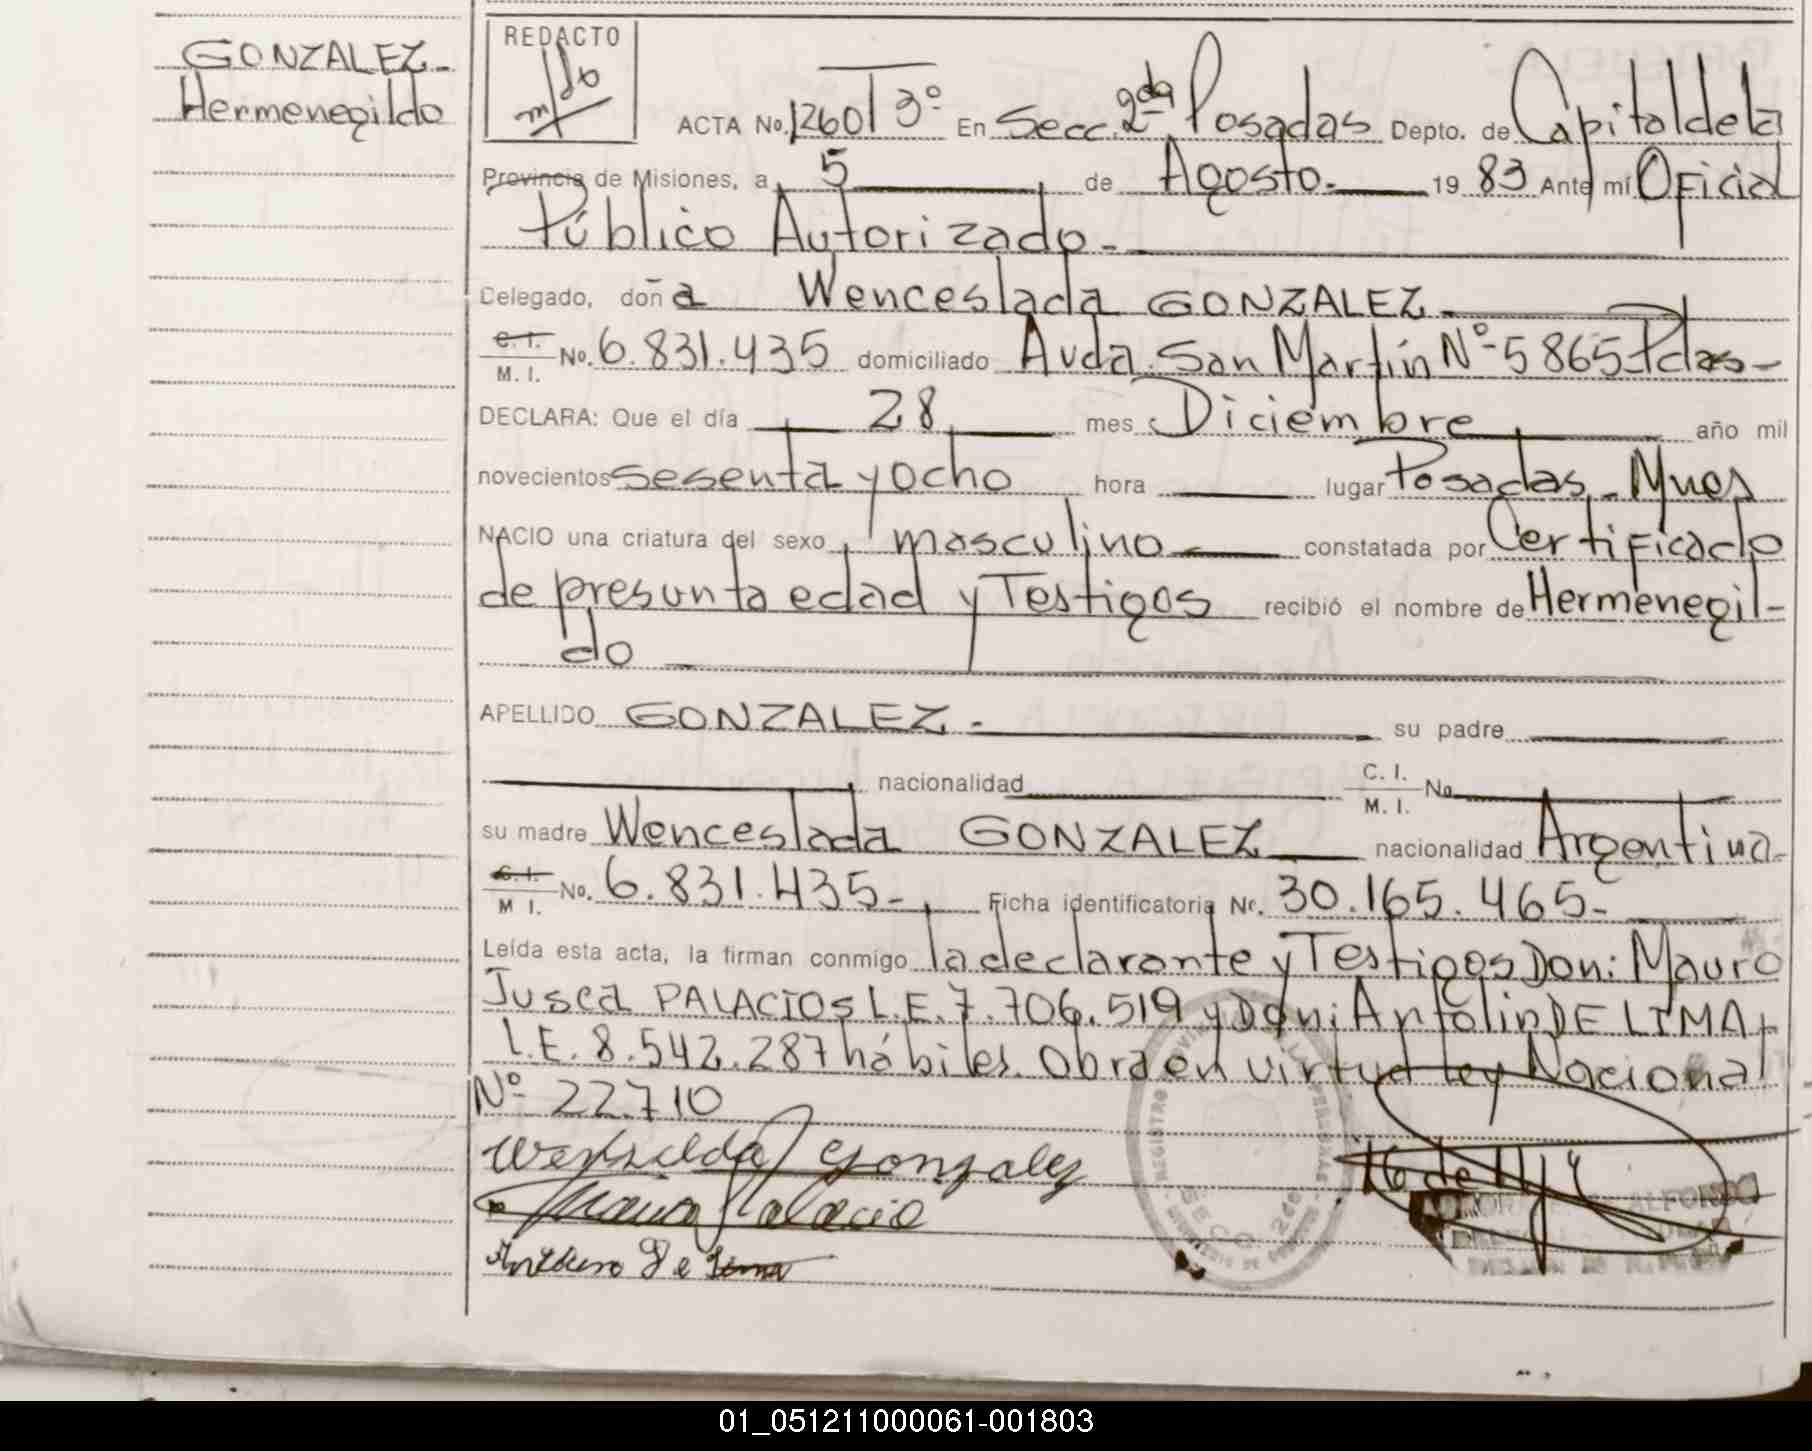 GONZALEZ-
Hermenegildo
REDACTO
ACTA No. 1260 T 3° En Secc. 2da Posadas Depto. de Capital de la
Provincia de Misiones, a 5 de Agosto.- 19 83 Ante mí Oficial
Público Autorizado.-
Delegado, doña Wenceslada GONZALEZ.-
C. I.
M. I. No. 6.831.435 domiciliado Avda. San Martín N° 5865 Pdas-
DECLARA: Que el día 28 mes Diciembre año mil
novecientos sesenta y ocho hora lugar Posadas.- Mnes
NACIO una criatura del sexo masculino constatada por Certificado
de presunta edad y Testigos recibió el nombre de Hermenegil-
do
APELLIDO GONZALEZ.- su padre
nacionalidad C. I.
M. I. No.
su madre Wenceslada GONZALEZ nacionalidad Argentina-
C. I.
M. I. No. 6.831.435- Ficha identificatoria Nr. 30.165.465-
Leída esta acta, la firman conmigo la declarante y Testigos Don: Mauro
Jusca PALACIOS L.E. 7.706.519 y Don: Antolin DE LIMA,
L.E. 8.542.287 hábiles. Obra en virtud ley Nacional
N° 22.710
Gonzalez
Palacio
De Lima
REGISTRO
SECC. 2da
01_051211000061-001803